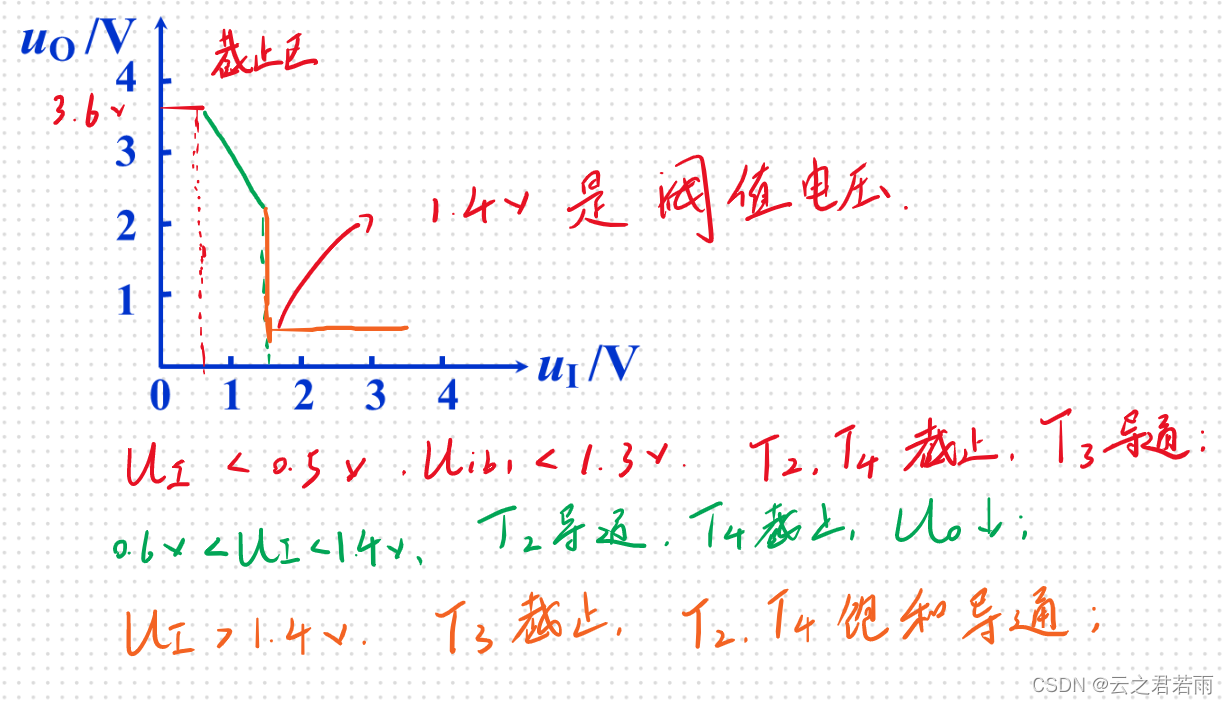 uO /V
截止区
4
3.6v
3
2
1
1.4v 是 阈值电压.
uI /V
0 1 2 3 4
UI < 0.5v . Uib1 < 1.3v. T2, T4 截止, T3 导通;
0.6v < UI < 1.4v, T2 导通. T4 截止, U0 ↓;
UI > 1.4v. T3 截止, T2, T4 饱和导通;
CSDN @云之君若雨